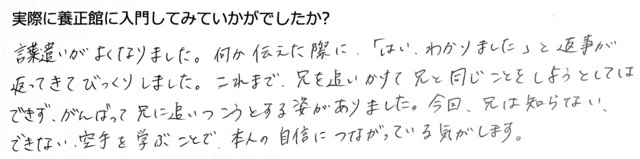 実際に養正館に入門してみていかがでしたか?
言葉遣いがよくなりました。何か伝えた際に、「はい、わかりました」と返事が
返ってきてびっくりしました。これまで、兄を追いかけて兄と同じことをしようとしては
できず、がんばって兄に追いつこうとする姿がありました。今回、兄は知らない、
できない、空手を学ぶことで、本人の自信につながっている気がします。